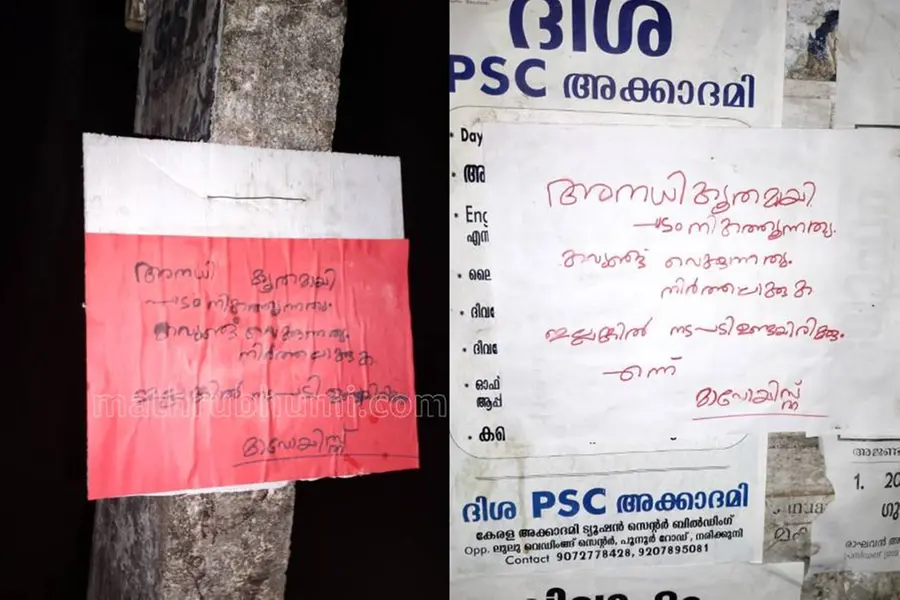 അനധി കൃതമായി
പാടം നികത്തുന്നതും
കവുങ്ങ് വെക്കുന്നതും
നിർത്തലാക്കുക
ഇല്ലങ്കിൽ നടപടി ഉണ്ടായിരിക്കും
മാവോയിസ്റ്റ്
mathrubhumi.com
ദിശ
PSC അക്കാദമി
Day
അ
Eng
എൻ
ലൈ
ദിവ
ദിവ
ഓഫ്
ആപ്
അനധികൃതമായി
പാടം നികത്തുന്നതും.
കവുങ്ങ് വെക്കുന്നതും.
നിർത്തലാക്കുക
ഇല്ലങ്കിൽ നടപടി ഉണ്ടായിരിക്കും.
എന്ന്
മാവോയിസ്റ്റ്
ദിശ PSC അക്കാദമി
കേരള അക്കാദമി ട്യൂഷൻ സെന്റർ ബിൽഡിംഗ്
Opp. ലുലു വെഡിംങ്ങ് സെന്റർ, പൂനൂർ റോഡ്, നരിക്കുനി
Contact 9072778428, 9207895081
അജണ്ട
1. 20
ഗു
രാഘവൻ അ